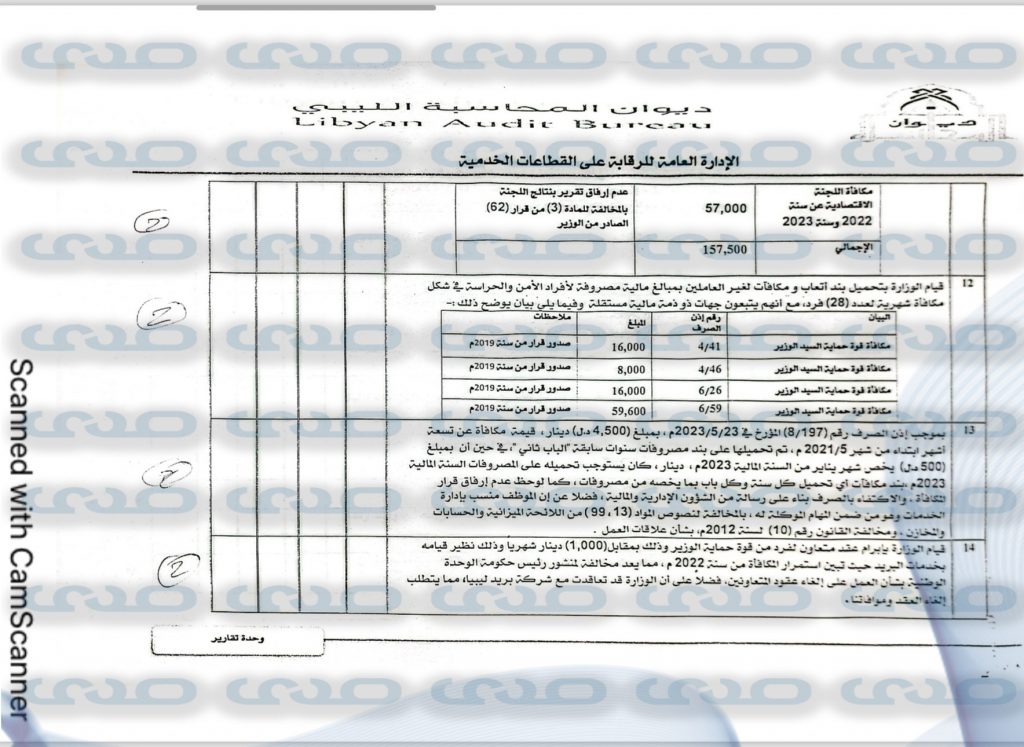 ديوان المحاسبة الليبي
Libyan Audit Bureau
ديوان
المحاسبة
الإدارة العامة للرقابة على القطاعات الخدمية
مكافأة اللجنة
الاقتصادية عن سنة
2022 وسنة 2023
57,000
عدم إرفاق تقرير بنتائج اللجنة
بالمخالفة للمادة (3) من قرار (62)
الصادر من الوزير
2
الإجمالي
157,500
12
قيام الوزارة بتحميل بند أتعاب و مكافآت لغير العاملين بمبالغ مالية مصروفة لأفراد الأمن والحراسة في شكل
مكافأة شهرية لعدد (28) فرد، مع أنهم يتبعون جهات ذو ذمة مالية مستقلة وفيما يلي بيان يوضح ذلك :-
2
البيان رقم إذن الصرف المبلغ ملاحظات
مكافأة قوة حماية السيد الوزير 4/41 16,000 صدور قرار من سنة 2019م
مكافأة قوة حماية السيد الوزير 4/46 8,000 صدور قرار من سنة 2019م
مكافأة قوة حماية السيد الوزير 6/26 16,000 صدور قرار من سنة 2019م
مكافأة قوة حماية السيد الوزير 6/59 59,600 صدور قرار من سنة 2019م
13
بموجب إذن الصرف رقم (8/197) المؤرخ في 2023/5/23م، بمبلغ (4,500 د.ل) دينار ، قيمة مكافأة عن تسعة
أشهر ابتداء من شهر 2021/5 م ، تم تحميلها على بند مصروفات سنوات سابقة "الباب ثاني" ، في حين أن بمبلغ
(500 د.ل) يخص شهر يناير من السنة المالية 2023م ، دينار ، كان يستوجب تحميله على المصروفات السنة المالية
2023م ،بند مكافآت اي تحميل كل سنة وكل باب بما يخصه من مصروفات ، كما لوحظ عدم إرفاق قرار
المكافأة ، والاكتفاء بالصرف بناء على رسالة من الشؤون الإدارية والمالية ، فضلا عن إن الموظف منسب بإدارة
الخدمات وهو من ضمن المهام الموكلة له ، بالمخالفة لنصوص المواد (13 ، 99) من اللائحة الميزانية والحسابات
والمخازن ، ومخالفة القانون رقم (10) لسنة 2012م، بشأن علاقات العمل .
2
14
قيام الوزارة بإبرام عقد متعاون لفرد من قوة حماية الوزير وذلك بمقابل (1,000) دينار شهريا وذلك نظير قيامه
بخدمات البريد حيث تبين استمرار المكافأة من سنة 2022 م ، مما يعد مخالفة لمنشور رئيس حكومة الوحدة
الوطنية بشأن العمل على إلغاء عقود المتعاونين، فضلاً على أن الوزارة قد تعاقدت مع شركة بريد ليبيا، مما يتطلب
إلغاء العقد وموافاتنا .
2
وحدة تقارير
Scanned with CamScanner
صدى